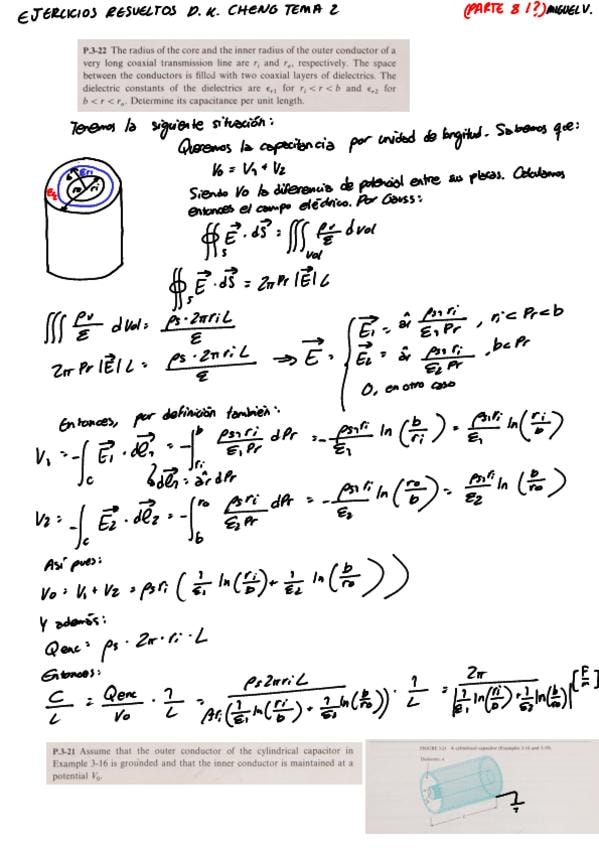 EJERCICIOS RESUELTOS D.K. CHENG TEMA 2 (PARTE 8 1?) MIGUEL V.
P.3-22 The radius of the core and the inner radius of the outer conductor of a
very long coaxial transmission line are rᵢ and rₒ, respectively. The space
between the conductors is filled with two coaxial layers of dielectrics. The
dielectric constants of the dielectrics are εr1 for rᵢ < r < b and εr2 for
b < r < rₒ. Determine its capacitance per unit length.
Tenemos la siguiente situación:
Queremos la capacitancia por unidad de longitud. Sabemos que:
V0 = V1 + V2
Siendo V0 la diferencia de potencial entre sus placas. Calculamos
entonces el campo eléctrico. Por Gauss:
∯s E⃗ · dS⃗ = ∭vol ρv/ε dvol
∯s E⃗ · dS⃗ = 2π Pr |E⃗| L
∭ ρv/ε dvol = ρs · 2π ri L / ε
2π Pr |E⃗| L = ρs · 2π ri L / ε ⇒ E⃗ =
E⃗1 = âr ρs1 ri / ε1 Pr , ri < Pr < b
E⃗2 = âr ρs1 ri / ε2 Pr , b < Pr
0, en otro caso
Entonces, por definición también:
V1 = -∫c E⃗1 · dl⃗1 = -∫ri^b ρs1 ri / ε1 Pr dPr = - ρs1 ri / ε1 ln (b/ri) = ρs1 ri / ε1 ln (ri/b)
dl⃗1 = âr dPr
V2 = -∫c E⃗2 · dl⃗2 = -∫b^ro ρs ri / ε2 Pr dPr = - ρs1 ri / ε2 ln (ro/b) = ρs1 ri / ε2 ln (b/ro)
Así pues:
V0 = V1 + V2 = ρs ri ( 1/ε1 ln (ri/b) + 1/ε2 ln (b/ro) ))
Y además:
Qenc = ρs · 2π · ri · L
Entonces:
C/L = Qenc/V0 · 1/L = ρs 2π ri L / ρs ri ( 1/ε1 ln (ri/b) + 1/ε2 ln (b/ro)) · 1/L = 2π / | 1/ε1 ln (ri/b) + 1/ε2 ln (b/ro) | [F/m]
P.3-21 Assume that the outer conductor of the cylindrical capacitor in
Example 3-16 is grounded and that the inner conductor is maintained at a
potential V₀.
FIGURE 3-21 A cylindrical capacitor (Examples 3-16 and 3-19).
Dielectric, ε